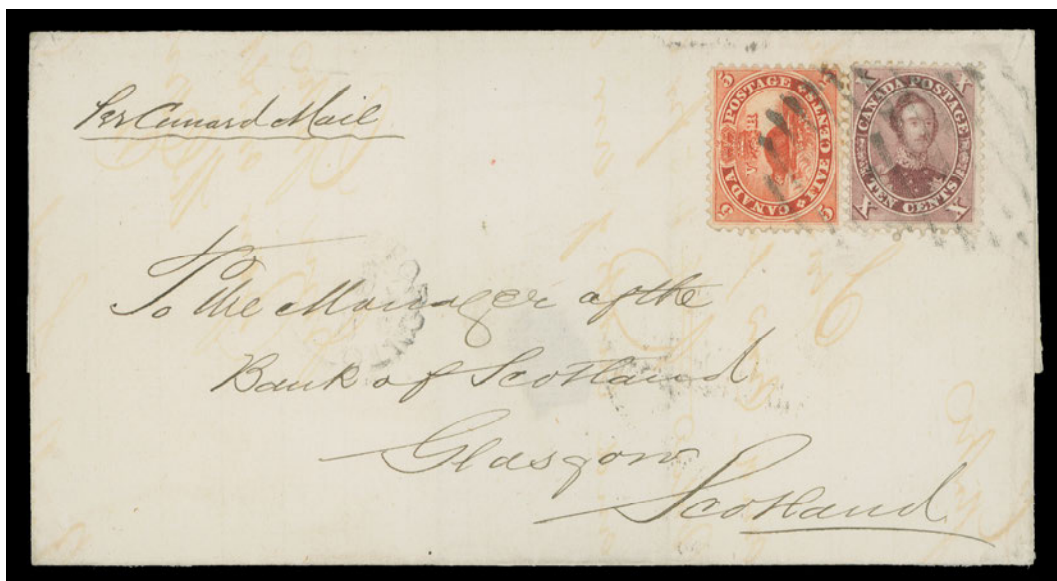 Per Cunard Mail
5 POSTAGE 5
FIVE CENTS
CANADA
5 5
X CANADA POSTAGE X
X TEN CENTS X
To the Manager of the
Bank of Scotland
Glasgow
Scotland